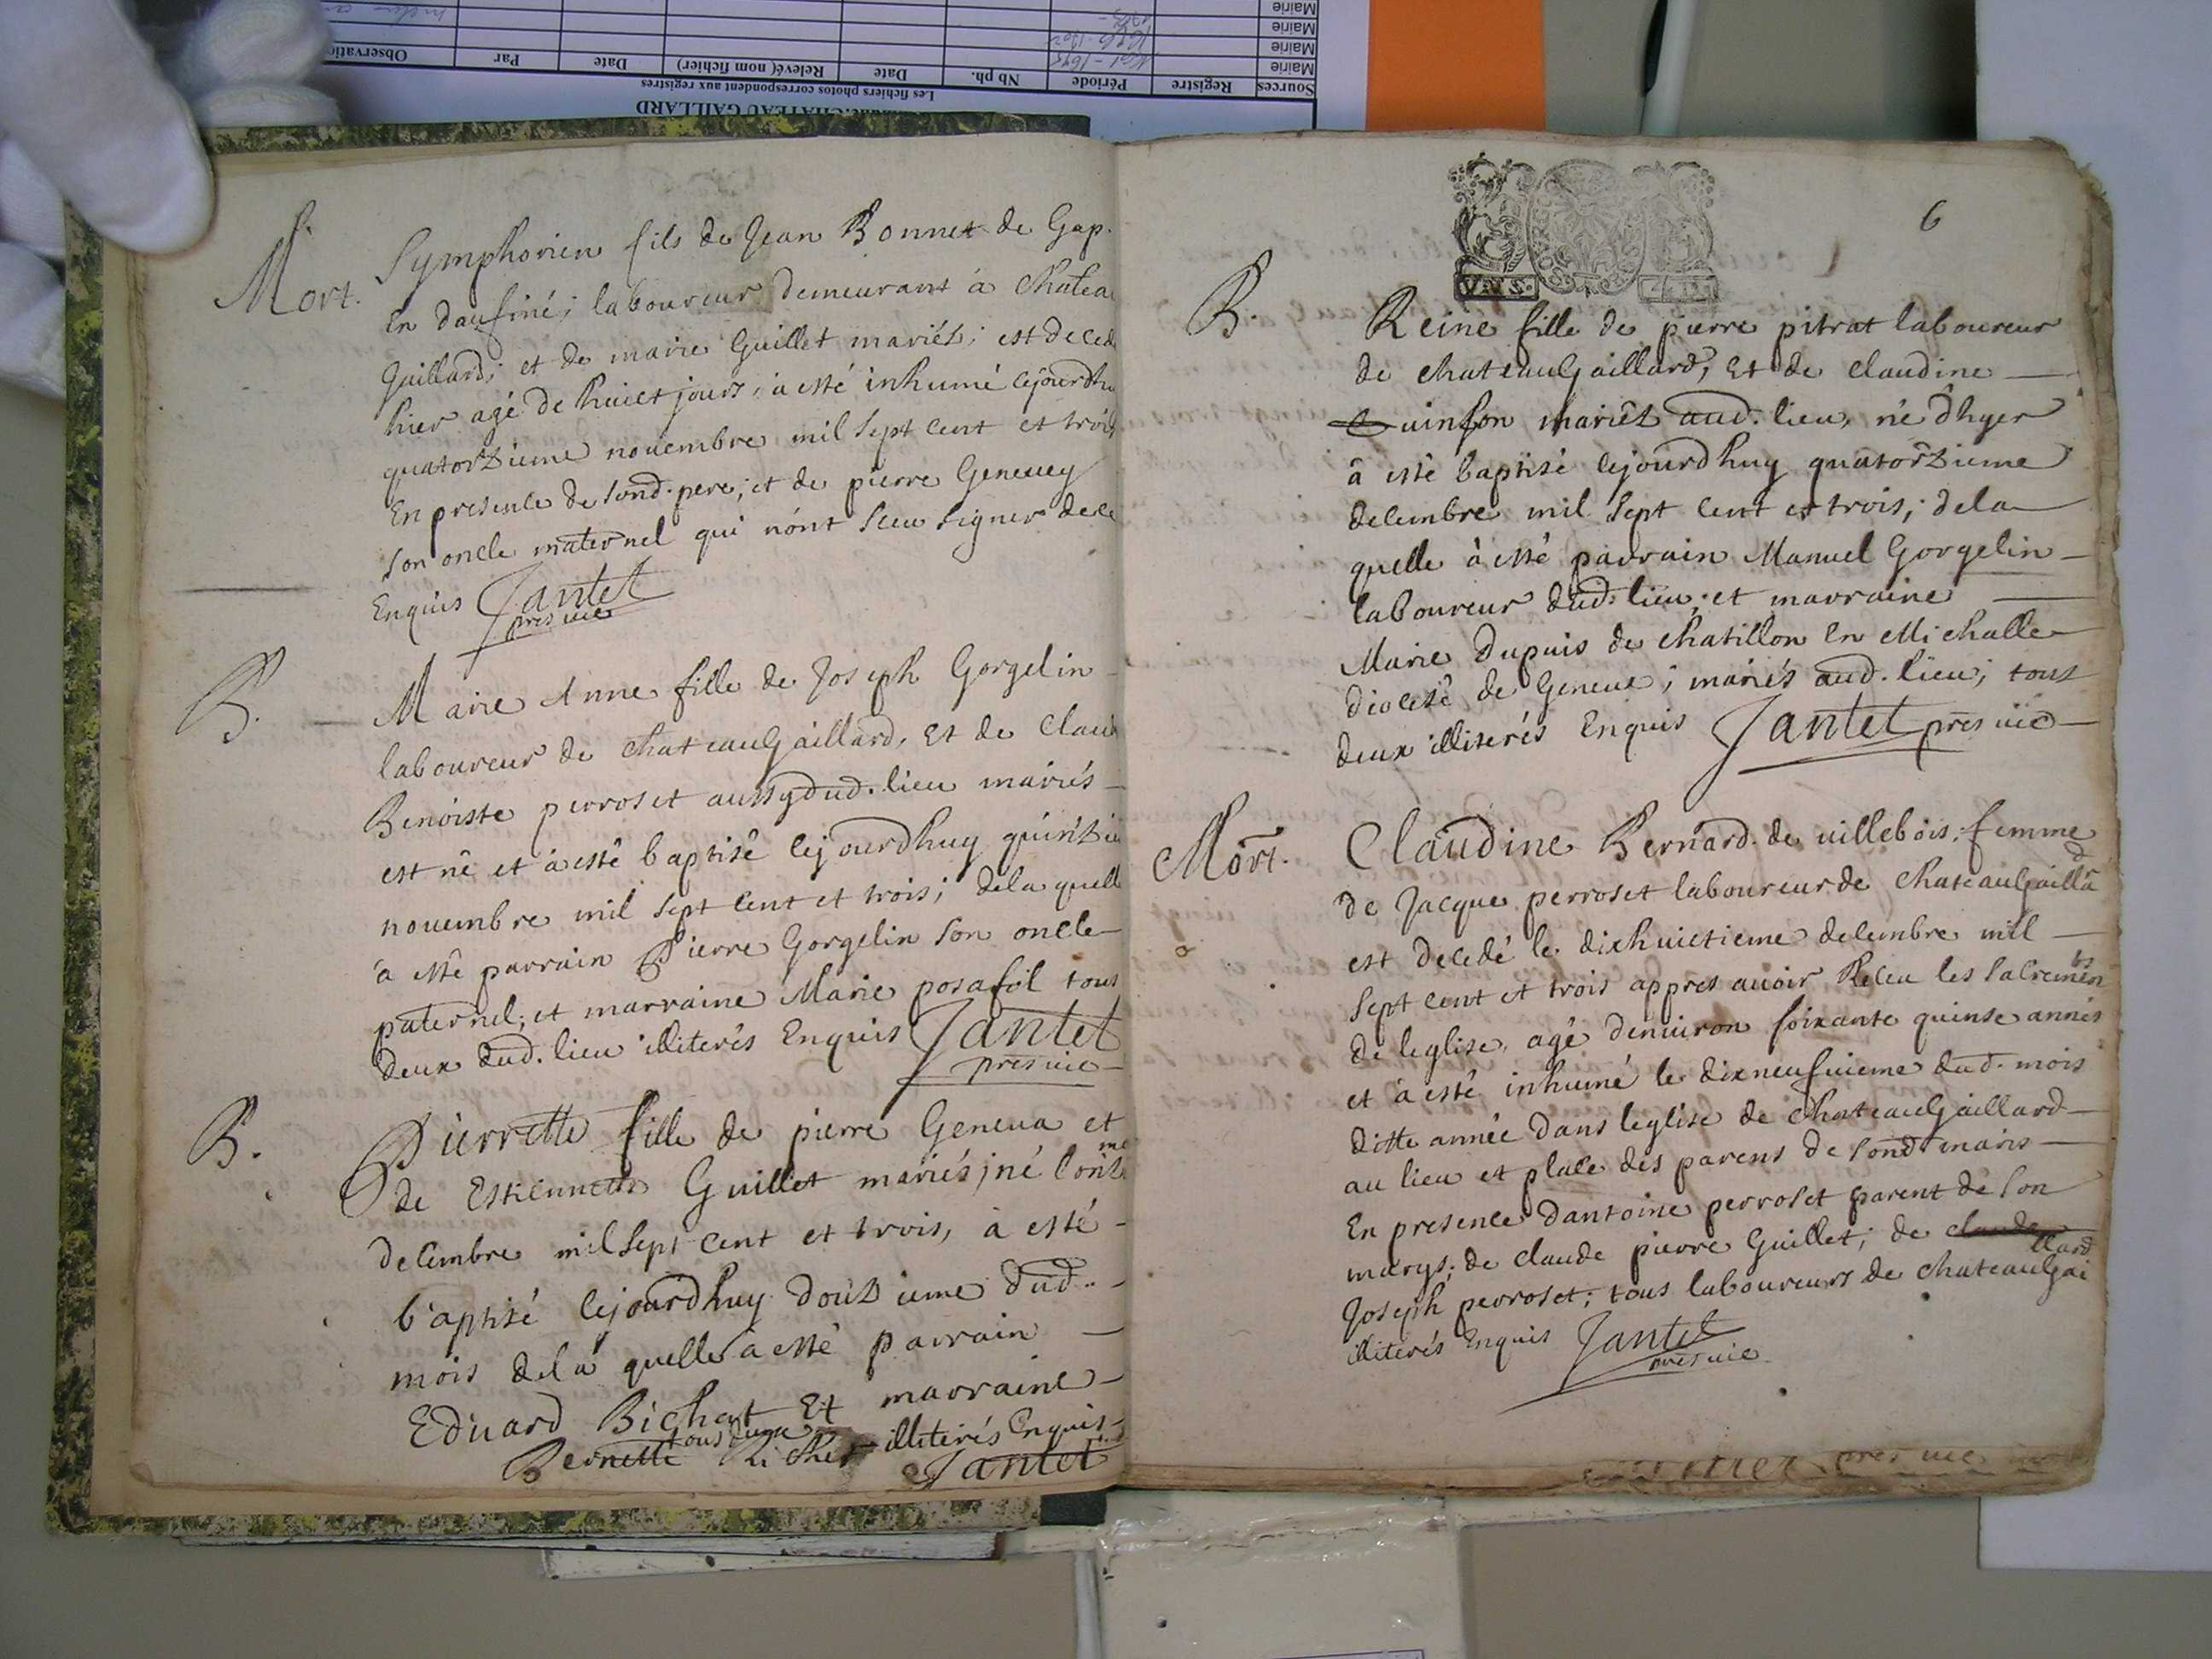 Mort.
Symphorien fils de Jean Bonnet de Gap.
En daufiné; laboureur demeurant à Chatea
Gaillard; et de marie Guillet mariés; est decedé
hier agé de huict jours, à esté inhumé cejourdhu
quatorzieme nouembre mil sept cent et trois
En presence de sond. pere; et de pierre Geneuey
son oncle maternel qui n'ont sceu signer de ce
Enquis Jantet
pres uic
B.
Marie Anne fille de Joseph Gorgelin
laboureur de chateauGaillard, Et de Claud
Benoiste perroset aussy dud. lieu mariés
est né et à esté baptisé cejourdhuy quinzie
nouembre mil sept cent et trois; de la quelle
à esté parrain Pierre Gorgelin son oncle
paternel; et marraine Marie posafol tous
deux dud. lieu illiterés Enquis Jantet
pres uic
B.
Pierrette fille de pierre Geneua et
de Estiennette Guillet mariés; né l'onz me
decembre mil sept cent et trois, à esté
baptisé cejourdhuy douzieme dud.
mois de la quelle à esté parrain
Eduard Bichat Et marraine
Bernette Richer tous deux illiterés Enquis
Jantet
6
B.
Reine fille de pierre pitrat laboureur
de chateauGaillard, Et de claudine
uinson mariés aud. lieu, né d'hyer
à esté baptisé cejourdhuy quatorzieme
decembre mil sept cent et trois; de la
quelle à esté parrain Manuel Gorgelin
laboureur dud. lieu; et marraine
Marie Dupuis de chatillon en Michalle
diocese de Geneue; mariés aud. lieu; tous
deux illiterés Enquis Jantet pres uic
Mort.
Claudine Bernard de uillebois; femme
de Jacque perroset laboureur de chateauGaillard
est decedé le dixhuictieme decembre mil
sept cent et trois appres auoir Receu les sacremens
de leglise, agé denuiron soixante quinse annés
et à esté inhumé le dixneufuieme dud. mois
ditte année dans leglise de chateauGaillard
au lieu et place des parens de sond maris
En presence dantoine perroset parent de son
marys; de claude pierre Guillet; de claude
Joseph perroset; tous laboureurs de chateauGaillard
illiterés Enquis Jantet
pres uic
pres uic
CHATEAU GAILLARD
Les fichiers photos correspondent aux registres
Sources Registre Période Nb ph. Date Relevé (nom fichier) Date Par Observation
Mairie
Mairie
Mairie
Mairie